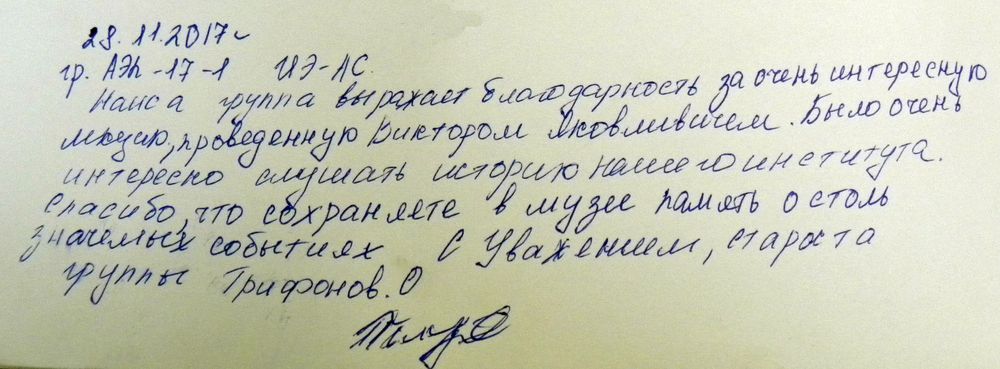 29.11.2017г
гр. АЭп-17-1 ИЭ-АС.
Наша группа выражает благодарность за очень интересную
лекцию, проведенную Виктором Яковливичем. Было очень
интересно слушать историю нашего института.
Спасибо, что сохраняете в музее память о столь
значемых событиях С Уважением, староста
группы Трифонов.О